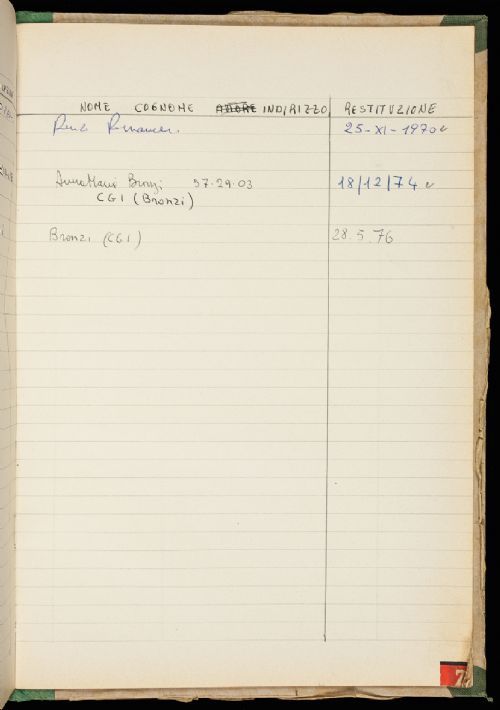 NOME COGNOME INDIRIZZO RESTITUZIONE
25-XI-1970
AnnaMaria Bronzi 57.29.03 18/12/74
CGI (Bronzi)
Bronzi (CGI) 28.5.76
7